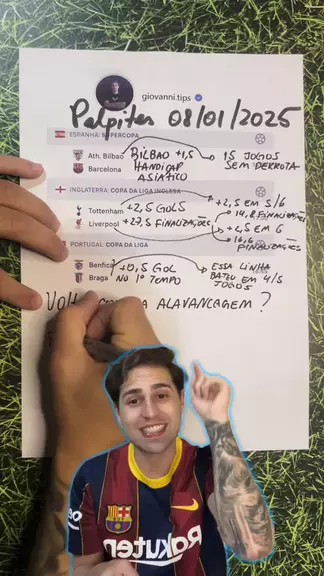 giovanni.tips
Palpites 08/01/2025
ESPANHA: SUPERCOPA
Ath. Bilbao
Barcelona
BILBAO +1,5
HANDICAP
ASIÁTICO
15 JOGOS
SEM DERROTA
INGLATERRA: COPA DA LIGA INGLESA
Tottenham
Liverpool
+2,5 GOLS
+27,5 FINALIZAÇÕES
+2,5 EM 5/6
14,8 FINALIZAÇÕES
+4,5 EM 6
16,6
FINALIZAÇÕES
PORTUGAL: COPA DA LIGA
Benfica
Braga
+0,5 GOL
NO 1º TEMPO
ESSA LINHA
BATEU EM 4/5
JOGOS
A ALAVANCAGEM?
Rakuten